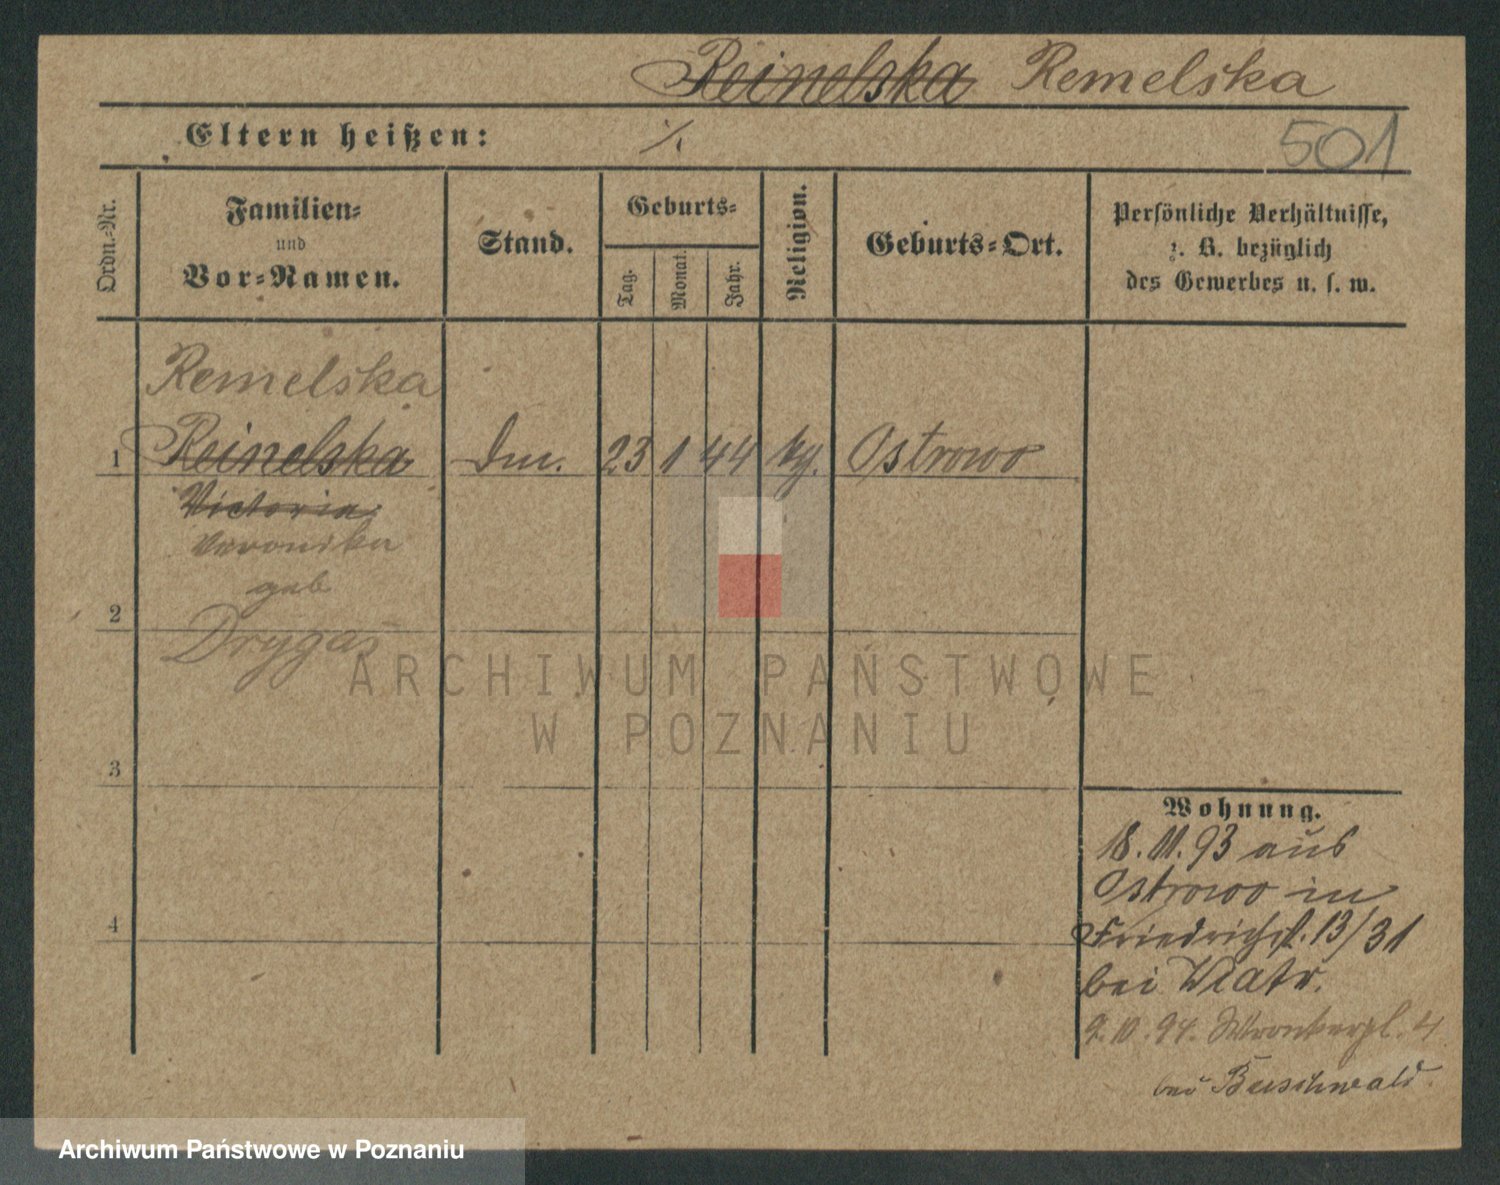 Reinelska Remelska
Eltern heißen: ./.
501
Ordn.-Nr.
Familien-
und
Vor-Namen.
Stand.
Geburts-
Tag.
Monat.
Jahr.
Religion.
Geburts-Ort.
Persönliche Verhältnisse,
z. B. bezüglich
des Gewerbes u. s. w.
Remelska
1 Reinelska 23 1 44 Ostrowo
Victoria
Veronika
geb
2
Drygas
3
4
Wohnung.
18.11.93 aus
Ostrowo in
Friedrichst. 13/31
bei Wiatr.
9.10.94. Wronkerpl. 4
bei Buschwald.
ARCHIWUM PAŃSTWOWE
W POZNANIU
Archiwum Państwowe w Poznaniu